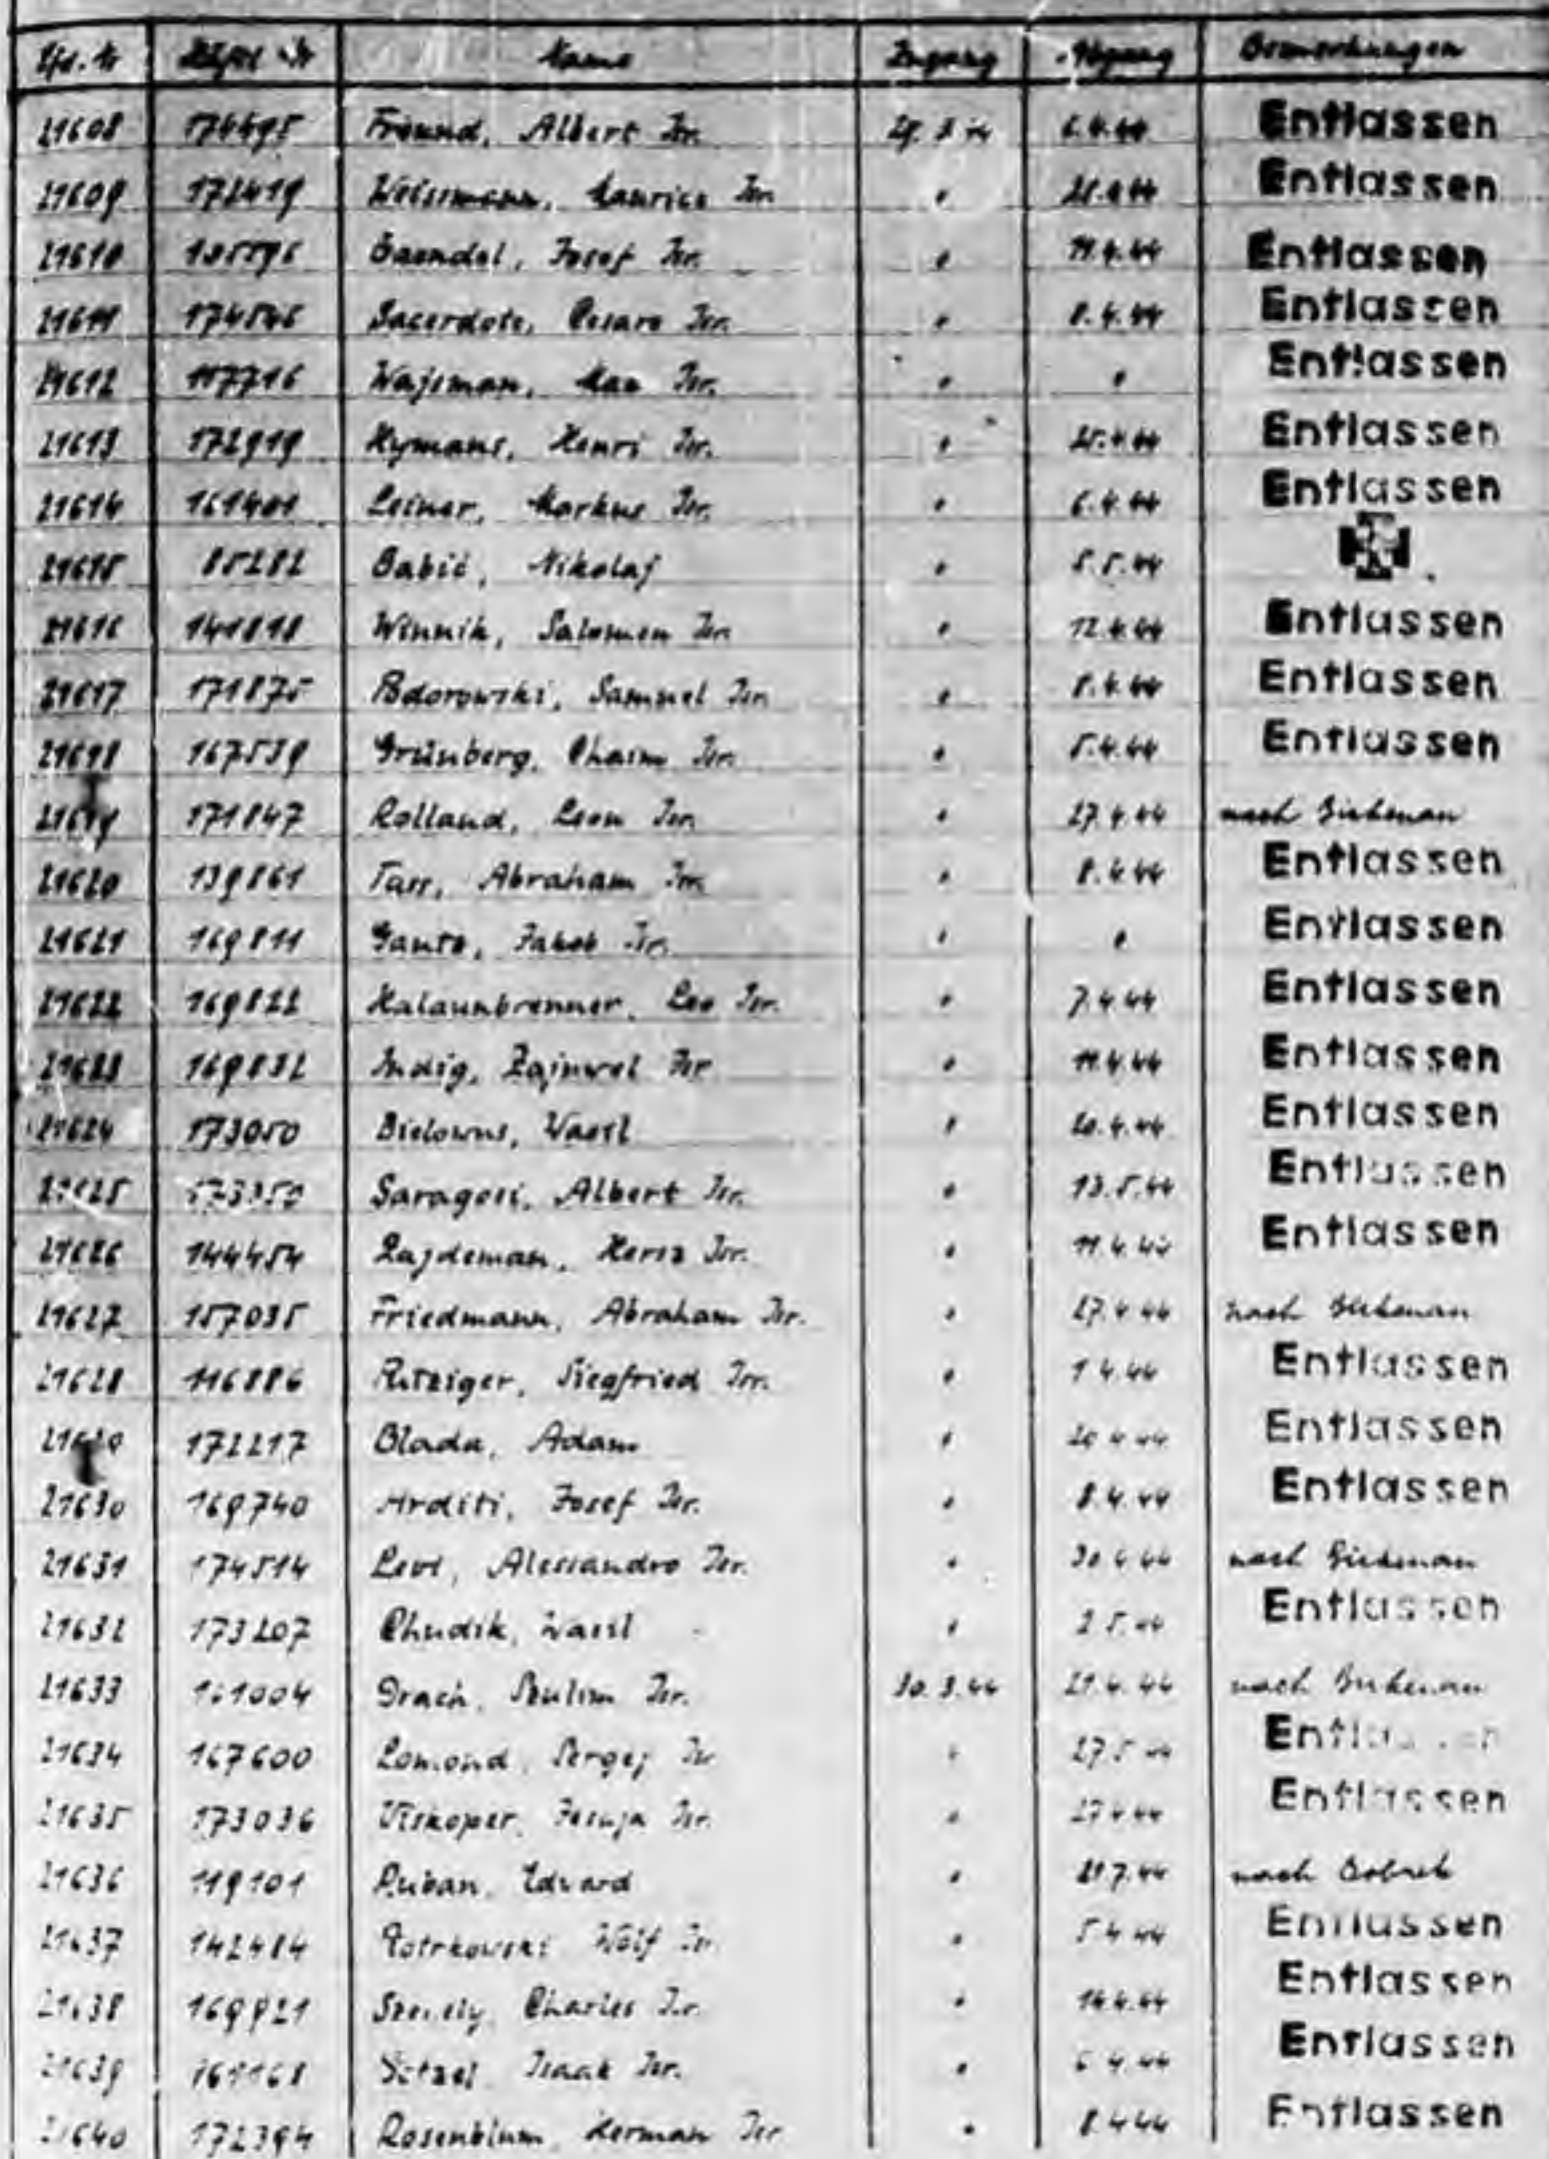 Lfd. Nr Häftl. Nr Name Zugang Abgang Bemerkungen
21608 174495 Freund, Albert Isr. 29.3.44 6.4.44 Entlassen
21609 172419 Weissmann, Maurice Isr. " Entlassen
21610 Josef Isr. " 11.4.44 Entlassen
21611 174546 Sacerdote, Cesare Isr. " 8.4.44 Entlassen
21612 117716 Wajsman, Max Isr. " " Entlassen
21613 172919 Hymans, Henri Isr. " 25.4.44 Entlassen
21614 161401 Leiner, Markus Isr. " 6.4.44 Entlassen
21615 85282 Babić, Nikolaj " 5.5.44
21616 141818 Winnik, Salomon Isr. " 12.4.44 Entlassen
21617 171875 Samuel Isr. " 8.4.44 Entlassen
21618 167539 Grünberg, Chaim Isr. " 5.4.44 Entlassen
21619 171847 Rolland, Leon Isr. " 27.4.44 nach Birkenau
21620 139861 Tarr, Abraham Isr. " 8.4.44 Entlassen
21621 169811 Gantz, Jakob Isr. " " Entlassen
21622 169822 Halaunbrenner, Leo Isr. " 7.4.44 Entlassen
21623 169832 Indig, Zajnwel Isr. " 11.4.44 Entlassen
21624 173050 Bielowus, Wasil " 20.4.44 Entlassen
21625 173350 Saragosi, Albert Isr. " 13.5.44 Entlassen
21626 144454 Lajdeman, Hersz Isr. " 11.4.44 Entlassen
21627 157035 Friedmann, Abraham Isr. " 27.4.44 nach Birkenau
21628 116886 Siegfried Isr. " 1.4.44 Entlassen
21629 172217 Blada, Adam " 20.4.44 Entlassen
21630 169740 Arditi, Josef Isr. " 8.4.44 Entlassen
21631 174514 Levi, Alessandro Isr. " 30.4.44 nach Birkenau
21632 173207 Chudik, Wasil " 2.5.44 Entlassen
21633 161004 Drach, Szulim Isr. 30.3.44 21.4.44 nach Birkenau
21634 167600 Lomond, Sergej Isr. " 27.5.44 Entlassen
21635 173036 Viskoper, Isr. " 27.4.44 Entlassen
21636 119101 Ruban, Edward " 21.7.44 nach Bobrek
21637 142484 Wolf Isr. " 5.4.44 Entlassen
21638 169921 Charles Isr. " 14.4.44 Entlassen
21639 161168 Isaak Isr. " 6.4.44 Entlassen
21640 172394 Rosenblum, Herman Isr. " 8.4.44 Entlassen